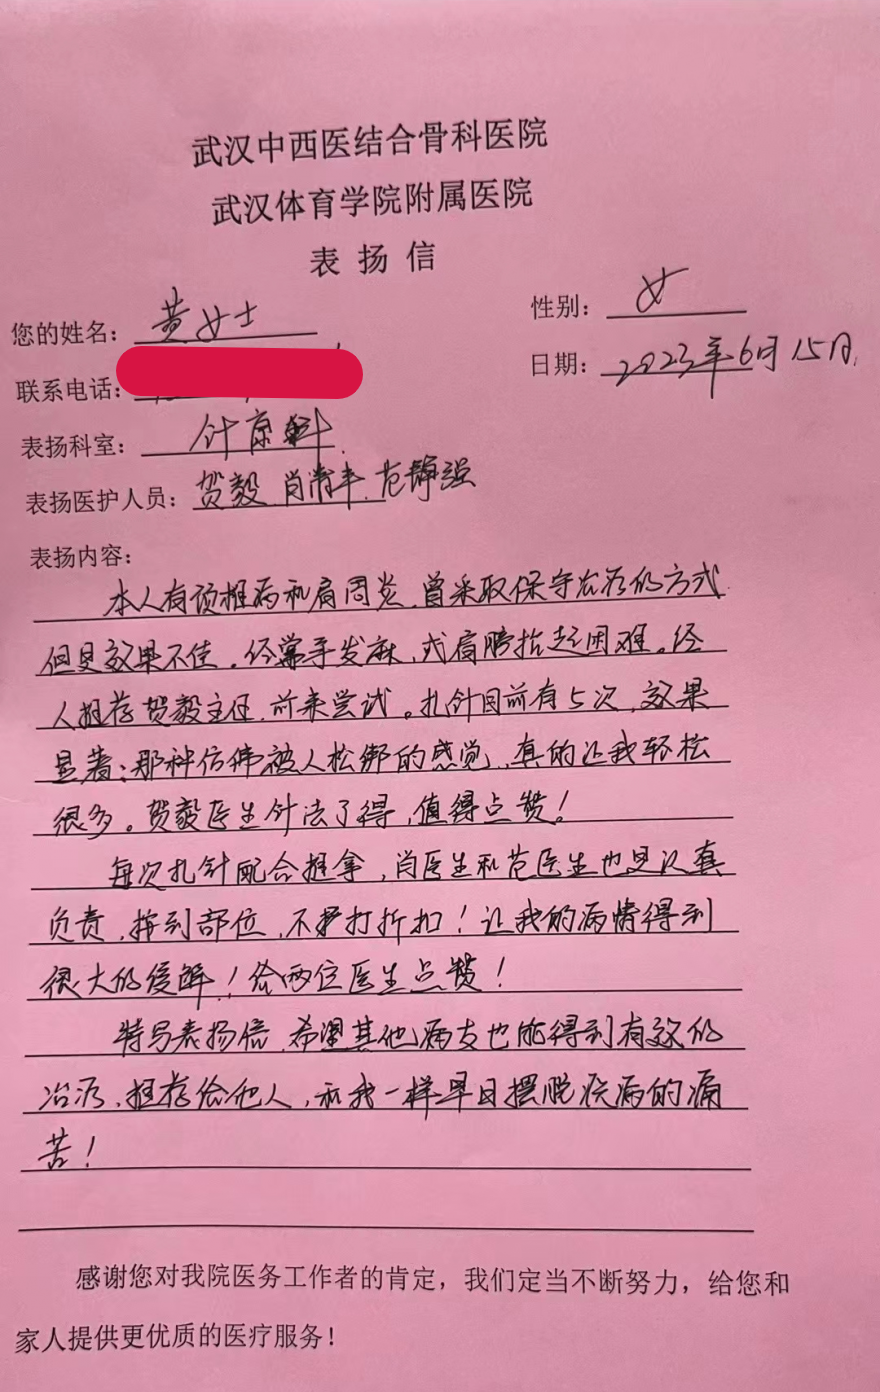 武汉中西医结合骨科医院
武汉体育学院附属医院
表扬信
您的姓名：黄女士
性别：女
联系电话：
日期：2023年6月15日
表扬科室：针康科
表扬医护人员：贺毅 肖 范静强
表扬内容：
本人有颈椎病和肩周炎，曾采取保守治疗的方式
但是效果不佳。经常手发麻，或肩膀抬起困难。经
人推荐贺毅主任，前来尝试。扎针目前有5次，效果
显著；那种仿佛被人松绑的感觉，真的让我轻松
很多。贺毅医生针法了得，值得点赞！
每次扎针配合推拿，肖医生和范医生也是认真
负责，按到部位，不打折扣！让我的病情得到
很大的缓解！给两位医生点赞！
特写表扬信，希望其他病友也能得到有效的
治疗，推荐给他人，和我一样早日摆脱疾病的痛
苦！
感谢您对我院医务工作者的肯定，我们定当不断努力，给您和
家人提供更优质的医疗服务！